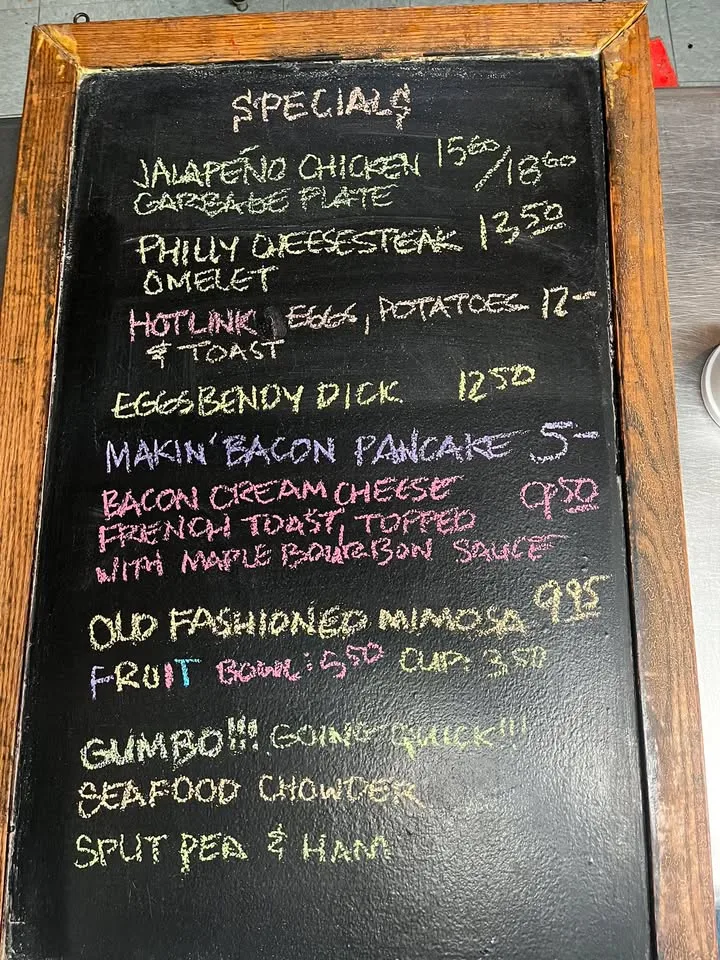 SPECIALS
JALAPEÑO CHICKEN 15⁶⁰/18⁶⁰
GARBAGE PLATE
PHILLY CHEESESTEAK 13.50
OMELET
HOTLINK EGGS, POTATOES 12-
& TOAST
EGGS BENDY DICK 12 50
MAKIN' BACON PANCAKE 5-
BACON CREAM CHEESE 9.50
FRENCH TOAST, TOPPED
WITH MAPLE BOURBON SAUCE
OLD FASHIONED MIMOSA 9.95
FRUIT BOWL: 5 50 CUP: 3.50
GUMBO!!! GOING QUICK!!!
SEAFOOD CHOWDER
SPLIT PEA & HAM